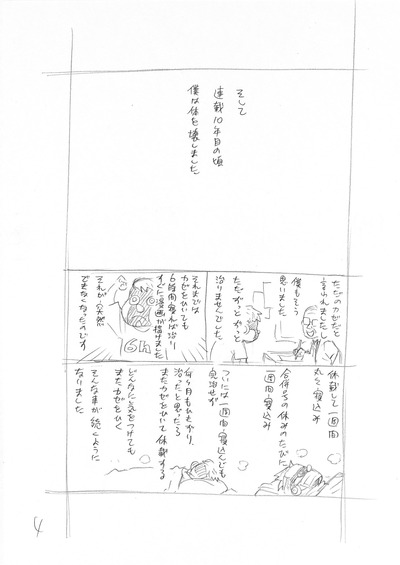 そして
連載10年目の頃
僕は体を壊しました
ただのカゼだと
言われましたし
僕もそう
思いました
ただずっとずっと
治りませんでした
それまでは
カゼをひいても
6時間寝れば治り
すぐに漫画が描けました
それが突然
できなくなったのです
6h
休載して一週間
丸々寝込み
合併号の休みのたびに
一週間寝込み
ついには一週間寝込んでも
完治せず
何ヶ月もひきずり
治ったと思ったら
またカゼをひいて休載する
どんなに気をつけても
またカゼをひく
そんな事が続くように
なりました
4